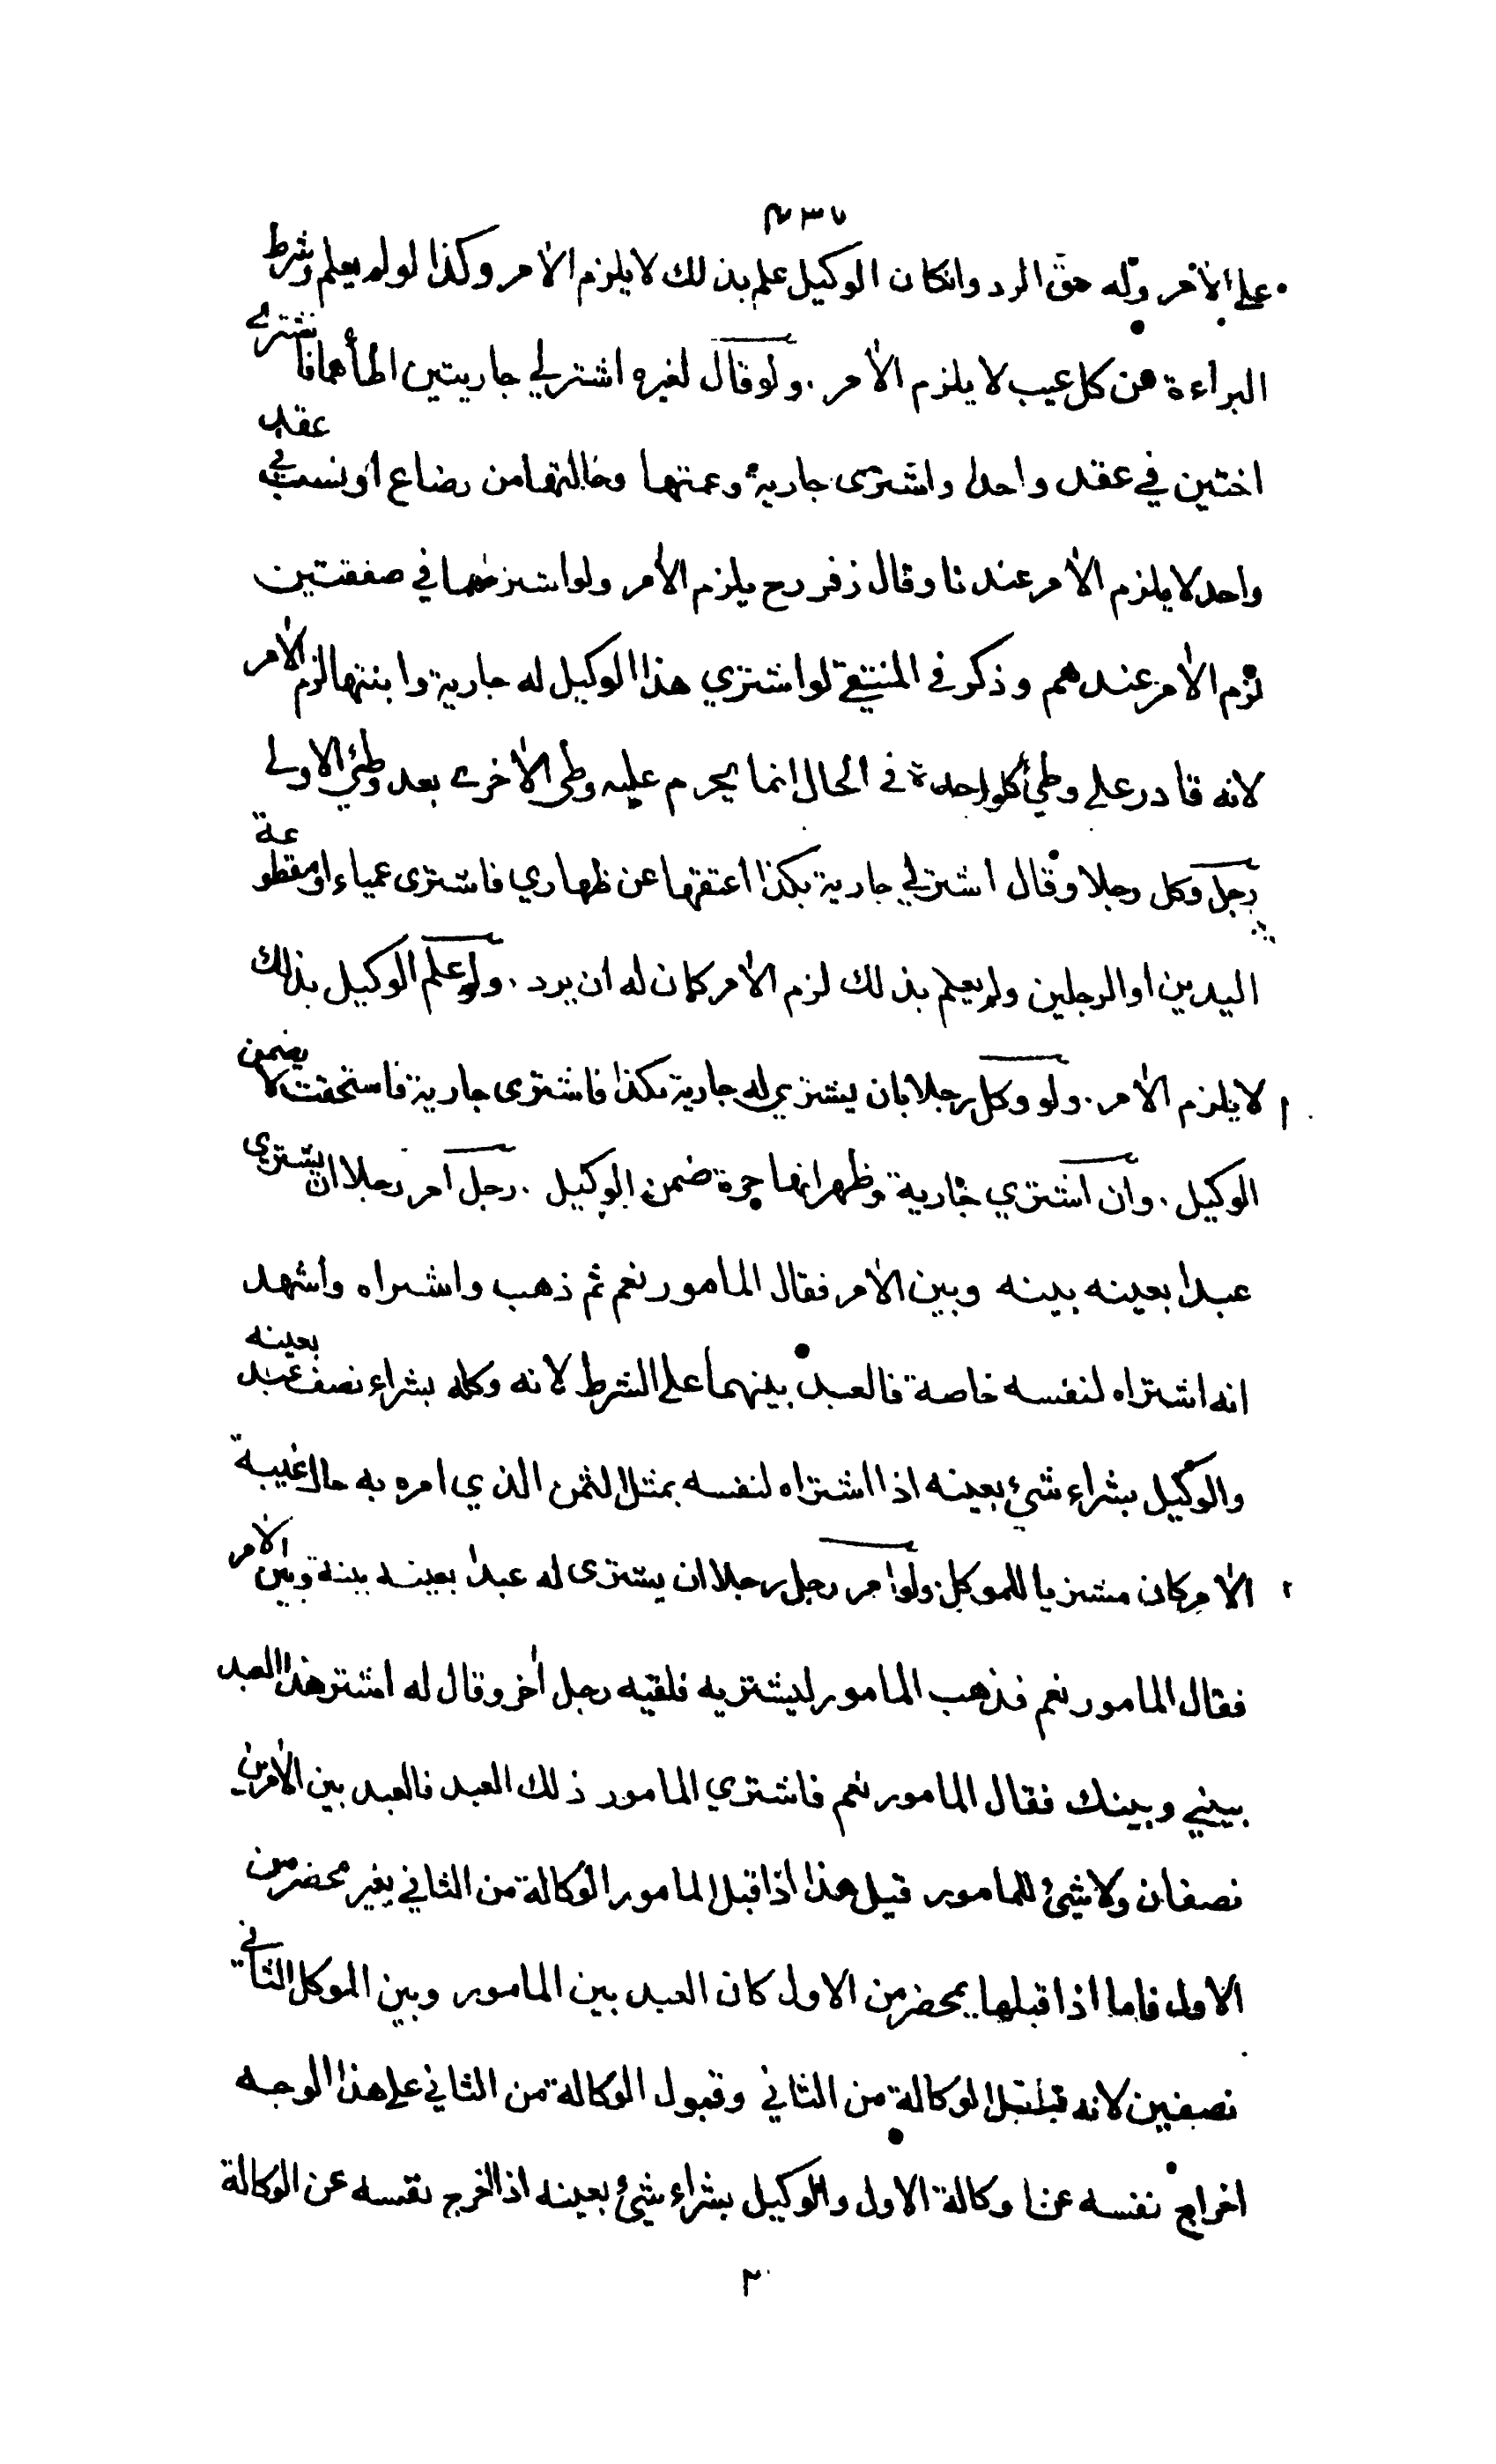 ٢٣٧
على الآمر وله حق الرد وانكان الوكيل علم بذلك لا يلزم الآمر وكذا لو لم يعلم وشرط
البراءة من كل عيب لا يلزم الآمر . ولو قال لغيره اشتر لي جاريتين اطأهما فاشترى
اختين في عقد واحد او اشترى جارية وعمتها وخالتها من رضاع او نسب في عقد
واحد لا يلزم الآمر عندنا وقال زفر رح يلزم الآمر ولو اشترهما في صفقتين
لزم الآمر عندهم وذكر في المنتقى لو اشتري هذا الوكيل له جارية وابنتها لزم الآمر
لانه قادر على وطئ كل واحدة في الحال انما يحرم عليه وطى الأخرى بعد وطئ الاولى
رجل وكل رجلا وقال اشتر لي جارية بكذا اعتقها عن ظهاري فاشترى عمياء او مقطوعة
اليدين او الرجلين ولم يعلم بذلك لزم الآمر كان له ان يرد . ولو علم الوكيل بذلك
لا يلزم الآمر . ولو وكل رجلا بان يشتري له جارية بكذا فاشترى جارية فاستحقت لا يضمن
الوكيل . وان اشتري جارية وظهر انها حرة ضمن الوكيل . رجل امر رجلا ان يشتري
عبدا بعينه بينه وبين الآمر فقال المامور نعم ثم ذهب واشراه واشهد
انه اشتراه لنفسه خاصة فالعبد بينهما على الشرط لانه وكله بشراء نصف عبد بعينه
والوكيل بشراء شئ بعينه اذا اشتراه لنفسه بمثل الثمن الذي امره به حال غيبة
الآمر كان مشتريا للموكل ولو امر رجل رجلا ان يشترى له عبدا بعينه بينه وبين الآمر
فقال المامور نعم فذهب المامور ليشتريه فلقيه رجل أخر وقال له اشتر هذا العبد
بيني وبينك فقال المامور نعم فاشتري المامور ذلك العبد فالعبد بين الآمرين
نصفان ولا شئ للمامور قيل هذا اذا قبل المامور الوكالة من الثاني بغير محضر من
الاول فاما اذا قبلها بمحضر من الاول كان العبد بين المامور وبين الموكل الثاني
نصفين لانه الوكالة من الثاني وقبول الوكالة من الثاني على هذا الوجه
اخراج نفسه عن وكالة الاول والوكيل بشراء شئ بعينه اذا اخرج نفسه عن الوكالة
٢